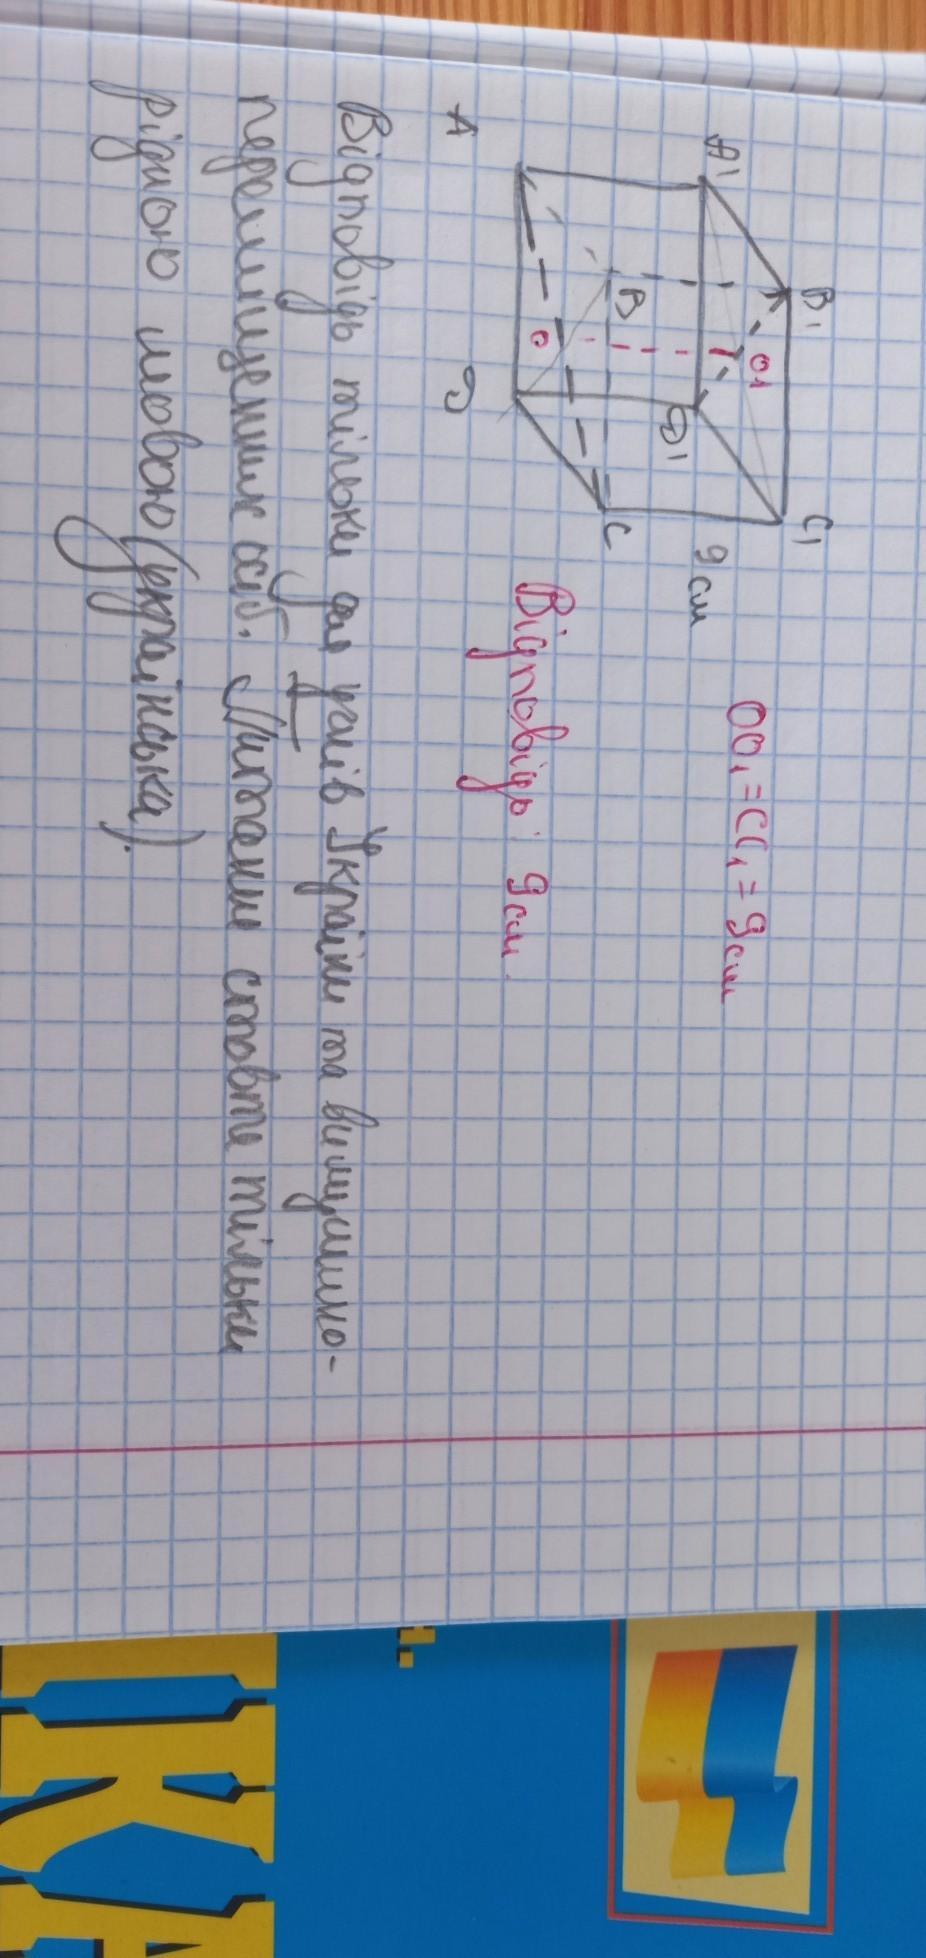 A1
B1
C1
D1
O1
A
B
C
D
O
9 см
OO₁ = CC₁ = 9 см
Відповідь: 9 см.
Відповідь тільки для учнів України та вимушено-
переміщених осіб. Питання ставте тільки
рідною мовою (українська).
ІКА